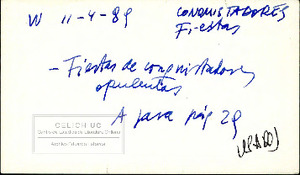 W 11-4-89 CONQUISTADORES
Fiestas
- Fiestas de conquistadores
opulentas
A para pág 29
CELICH UC
(USADO)